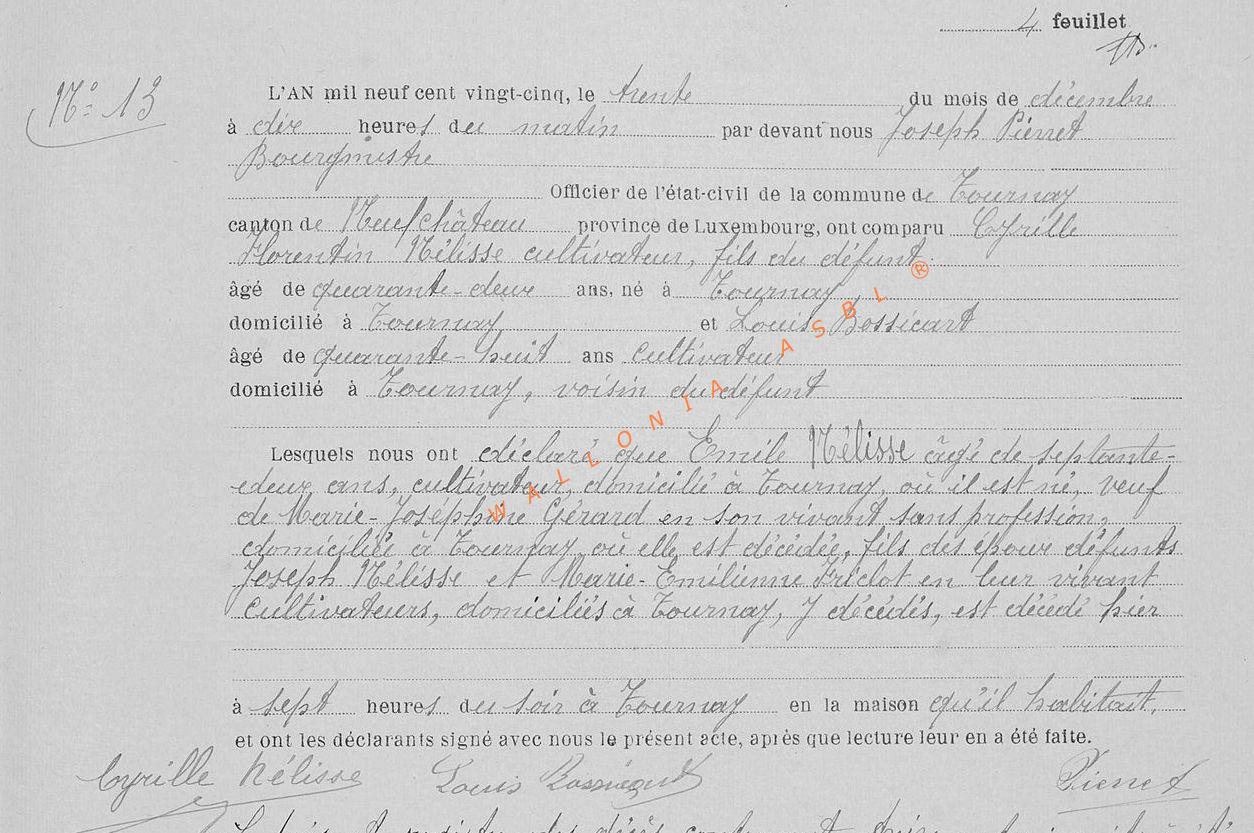 4 feuillet
N° 13
L'AN mil neuf cent vingt-cinq, le trente du mois de décembre
à dix heures du matin par devant nous Joseph Pierret
Bourgmestre
Officier de l'état-civil de la commune de Tournay
canton de Neufchâteau province de Luxembourg, ont comparu Cyrille
Florentin Nélisse cultivateur, fils du défunt
âgé de quarante-deux ans, né à Tournay,
domicilié à Tournay et Louis Bossicart
âgé de quarante-huit ans cultivateur
domicilié à Tournay, voisin du défunt
Lesquels nous ont déclaré que Emile Nélisse âgé de septante-
deux ans, cultivateur, domicilié à Tournay, où il est né, veuf
de Marie-Joséphine Gérard en son vivant sans profession,
domiciliée à Tournay où elle est décédée, fils des époux défunts
Joseph Nélisse et Marie-Emilienne Friclot en leur vivant
cultivateurs, domiciliés à Tournay, y décédés, est décédé hier
à sept heures du soir à Tournay en la maison qu'il habitait,
et ont les déclarants signé avec nous le présent acte, après que lecture leur en a été faite.
Cyrille Nélisse Louis Bossicart Pierret
WALLONIA ASBL ®